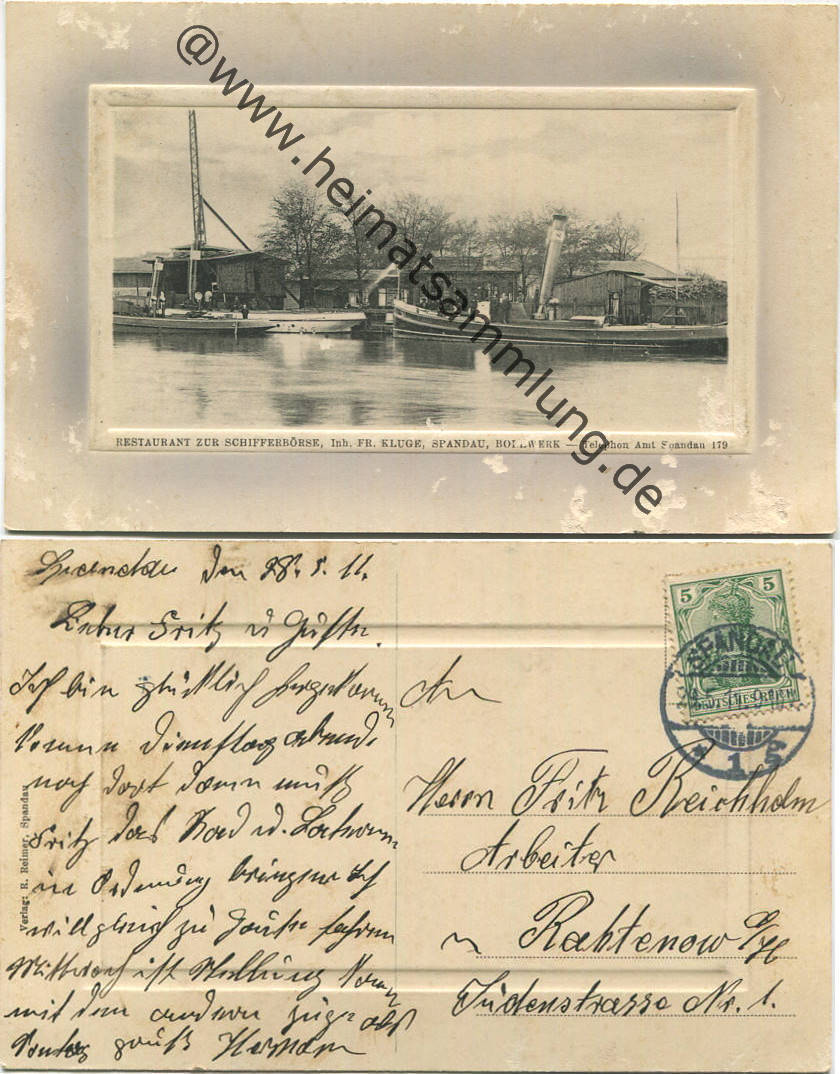 @www.heimatsammlung.de
RESTAURANT ZUR SCHIFFERBÖRSE, Inh. FR. KLUGE, SPANDAU, BOLLWERK — Telephon Amt Spandau 179
Spandau den 28.5.11.
Lieber Fritz u Guste.
Ich bin glücklich
komme Dienstag abend
nach dort dann muß
Fritz das Rad u. Laterne
in Ordnung bringen ich
will gleich zu Hause fahren
Mittwoch ist Stellung komme
mit dem andern Zuge als
gruß Hermann
Verlag: R. Reimer, Spandau
5 5
DEUTSCHES REICH
SPANDAU
* 1 5
An
Herrn Fritz Reichhelm
Arbeiter
in Rahtenow a/H
Jüdenstrasse Nr. 1.